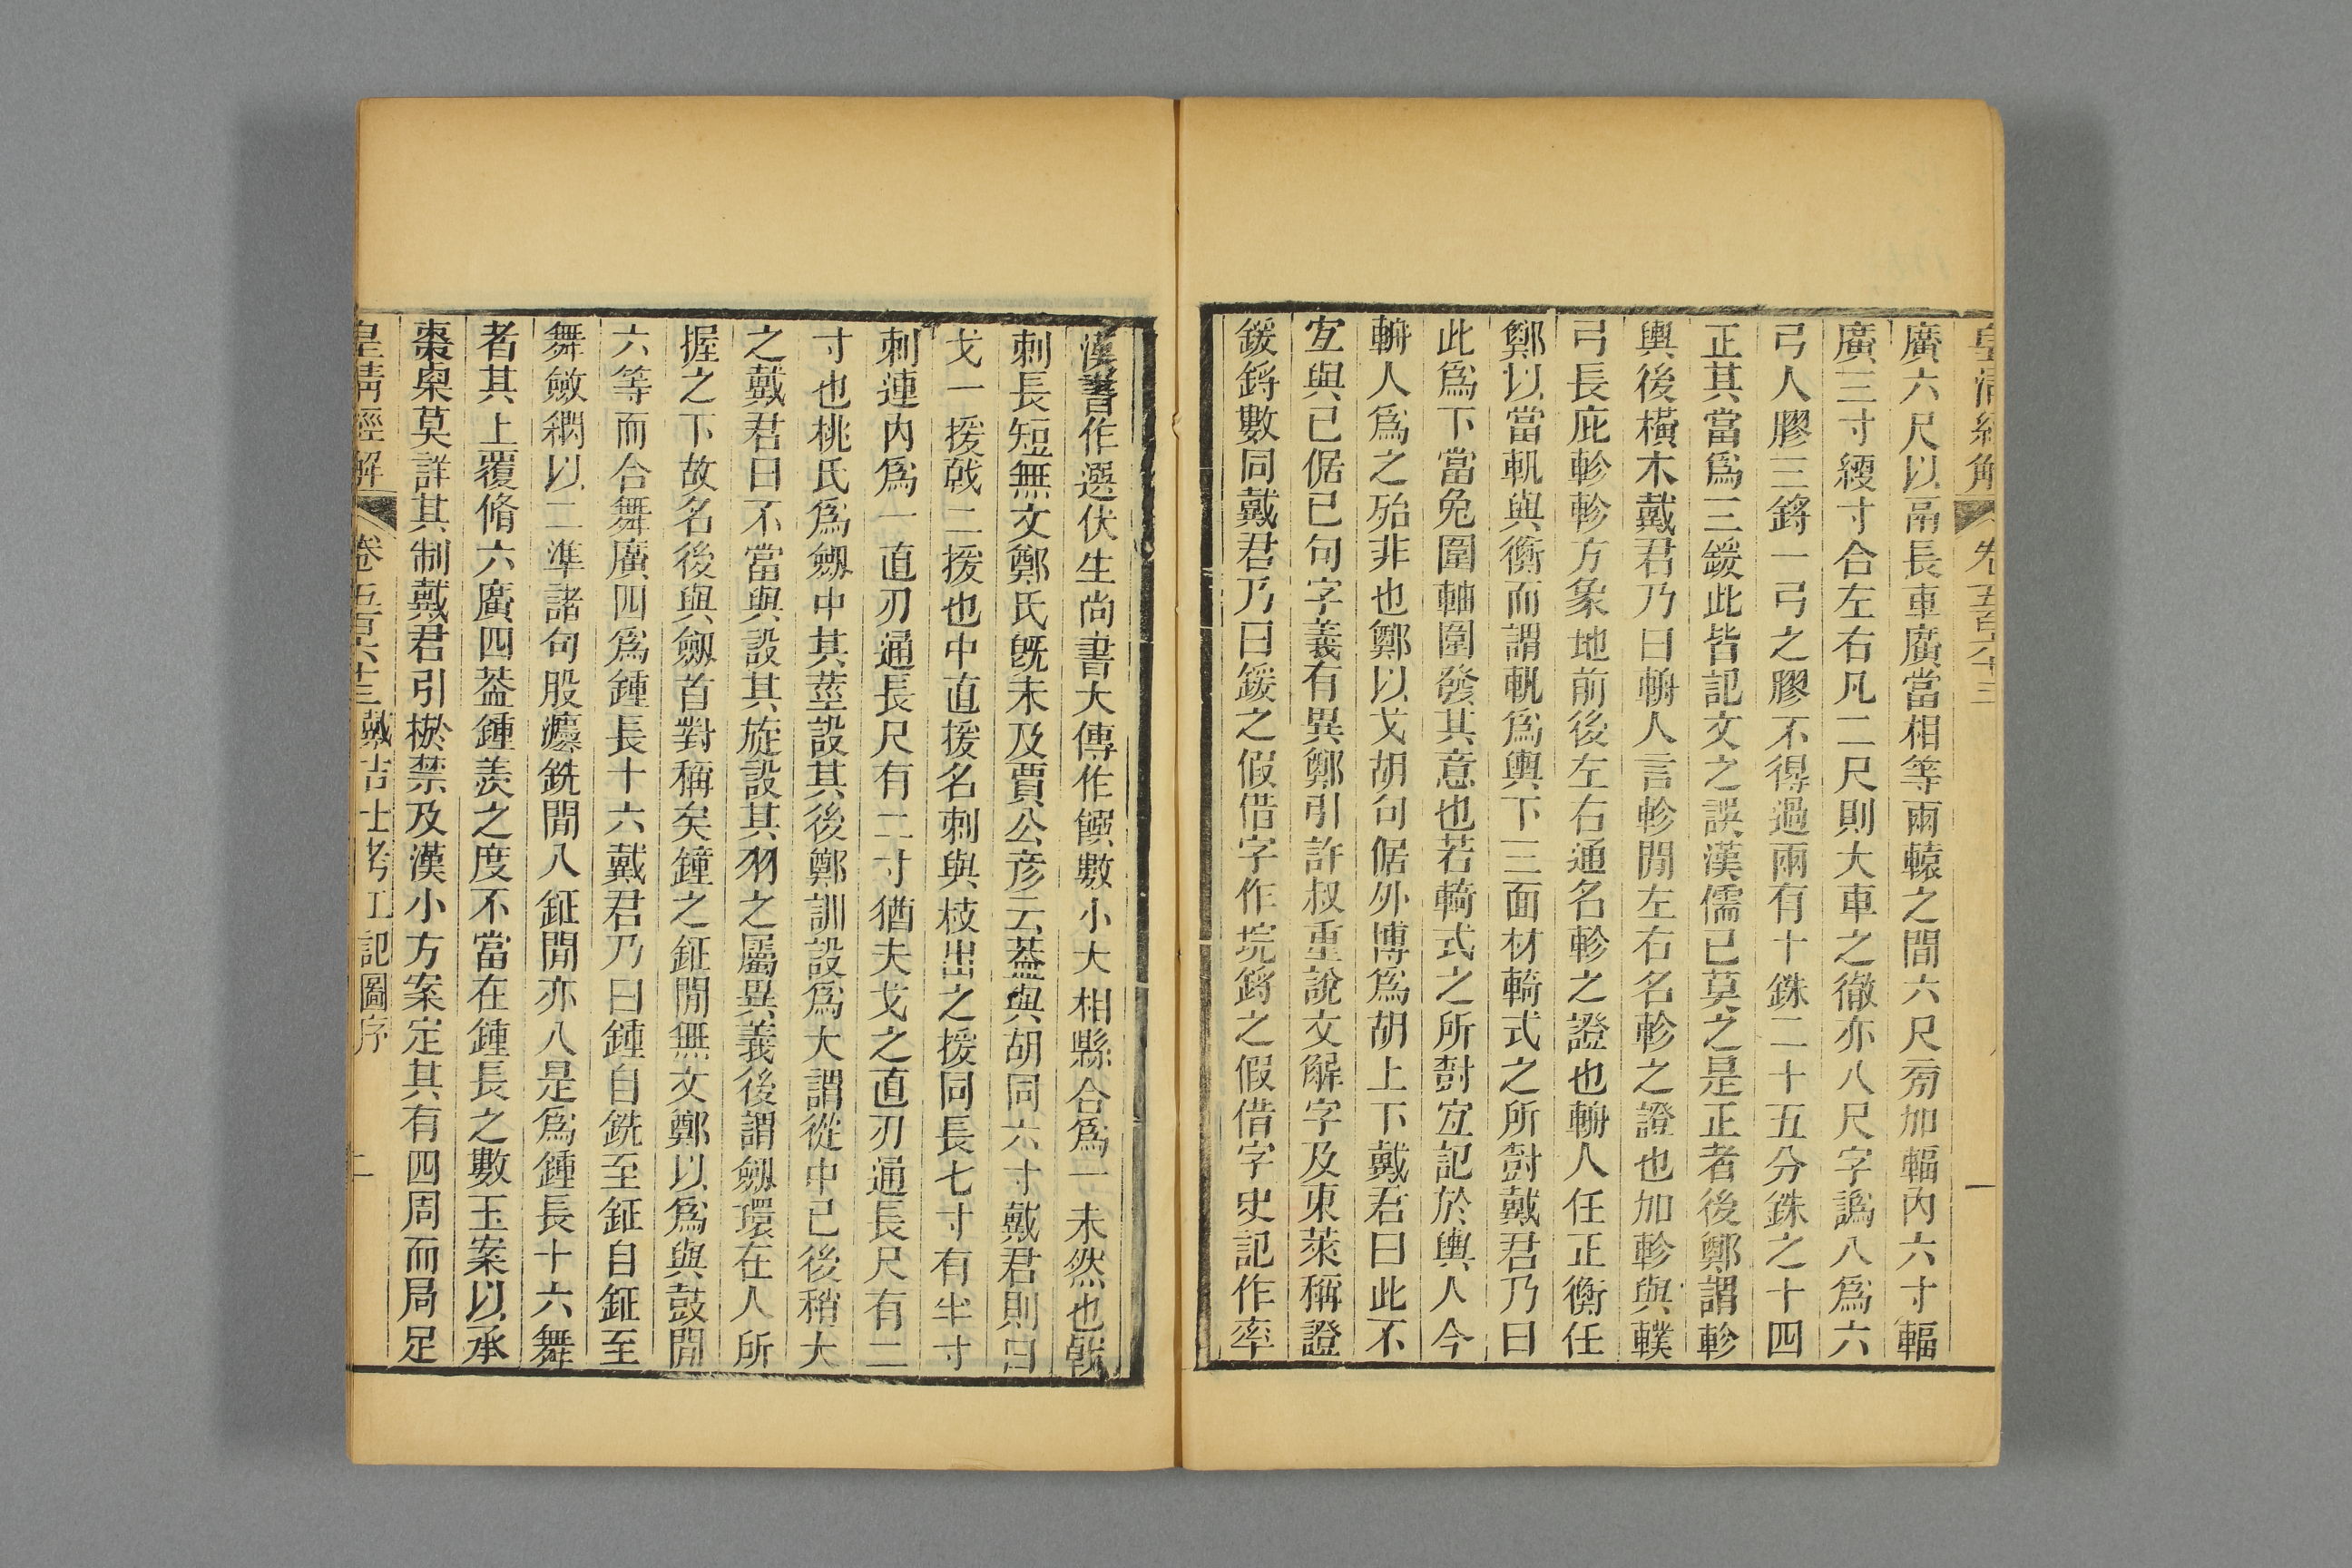 廣六尺以鬲長車廣當相等兩轅之間六尺旁加輻內六寸輻
廣三寸綆寸合左右凡二尺則大車之徹亦八尺字譌八爲六
弓人膠三鋝一弓之膠不得過兩有十銖二十五分銖之十四
正其當爲三鍰此皆記文之誤漢儒已莫之是正者後鄭謂軫
輿後橫木戴君乃曰輈人言軫閒左右名軫之證也加軫與轐
弓長庇軫軫方象地前後左右通名軫之證也輈人任正衡任
鄭以當軓與衡而謂軓爲輿下三面材輢式之所尌戴君乃曰
此爲下當兔圍軸圍發其意也若輢式之所尌宜記於輿人今
輈人爲之殆非也鄭以戈胡句倨外博爲胡上下戴君曰此不
宜與已倨已句字義有異鄭引許叔重說文解字及東萊稱證
鍰鋝數同戴君乃曰鍰之假借字作垸鋝之假借字史記作率
漢書作選伏生尚書大傳作饌數小大相縣合爲一未然也戟
刺長短無文鄭氏旣未及賈公彥云葢與胡同六寸戴君則曰
戈一援戟二援也中直援名刺與枝出之援同長七寸有半寸
刺連內爲一直刃通長尺有二寸猶夫戈之直刃通長尺有二
寸也桃氏爲劒中其莖設其後鄭訓設爲大謂從中已後稍大
之戴君曰不當與設其旋設其羽之屬異義後謂劒環在人所
握之下故名後與劒首對稱矣鐘之鉦閒無文鄭以爲與鼓閒
六等而合舞廣四爲鍾長十六戴君乃曰鍾自銑至鉦自鉦至
舞斂閷以二準諸句股灋銑閒八鉦閒亦八是爲鍾長十六舞
者其上覆脩六廣四葢鍾羨之度不當在鍾長之數玉案以承
棗㮚莫詳其制戴君引棜禁及漢小方案定其有四周而局足
皇清經解 卷五百六十三 戴吉士考工記圖序 二